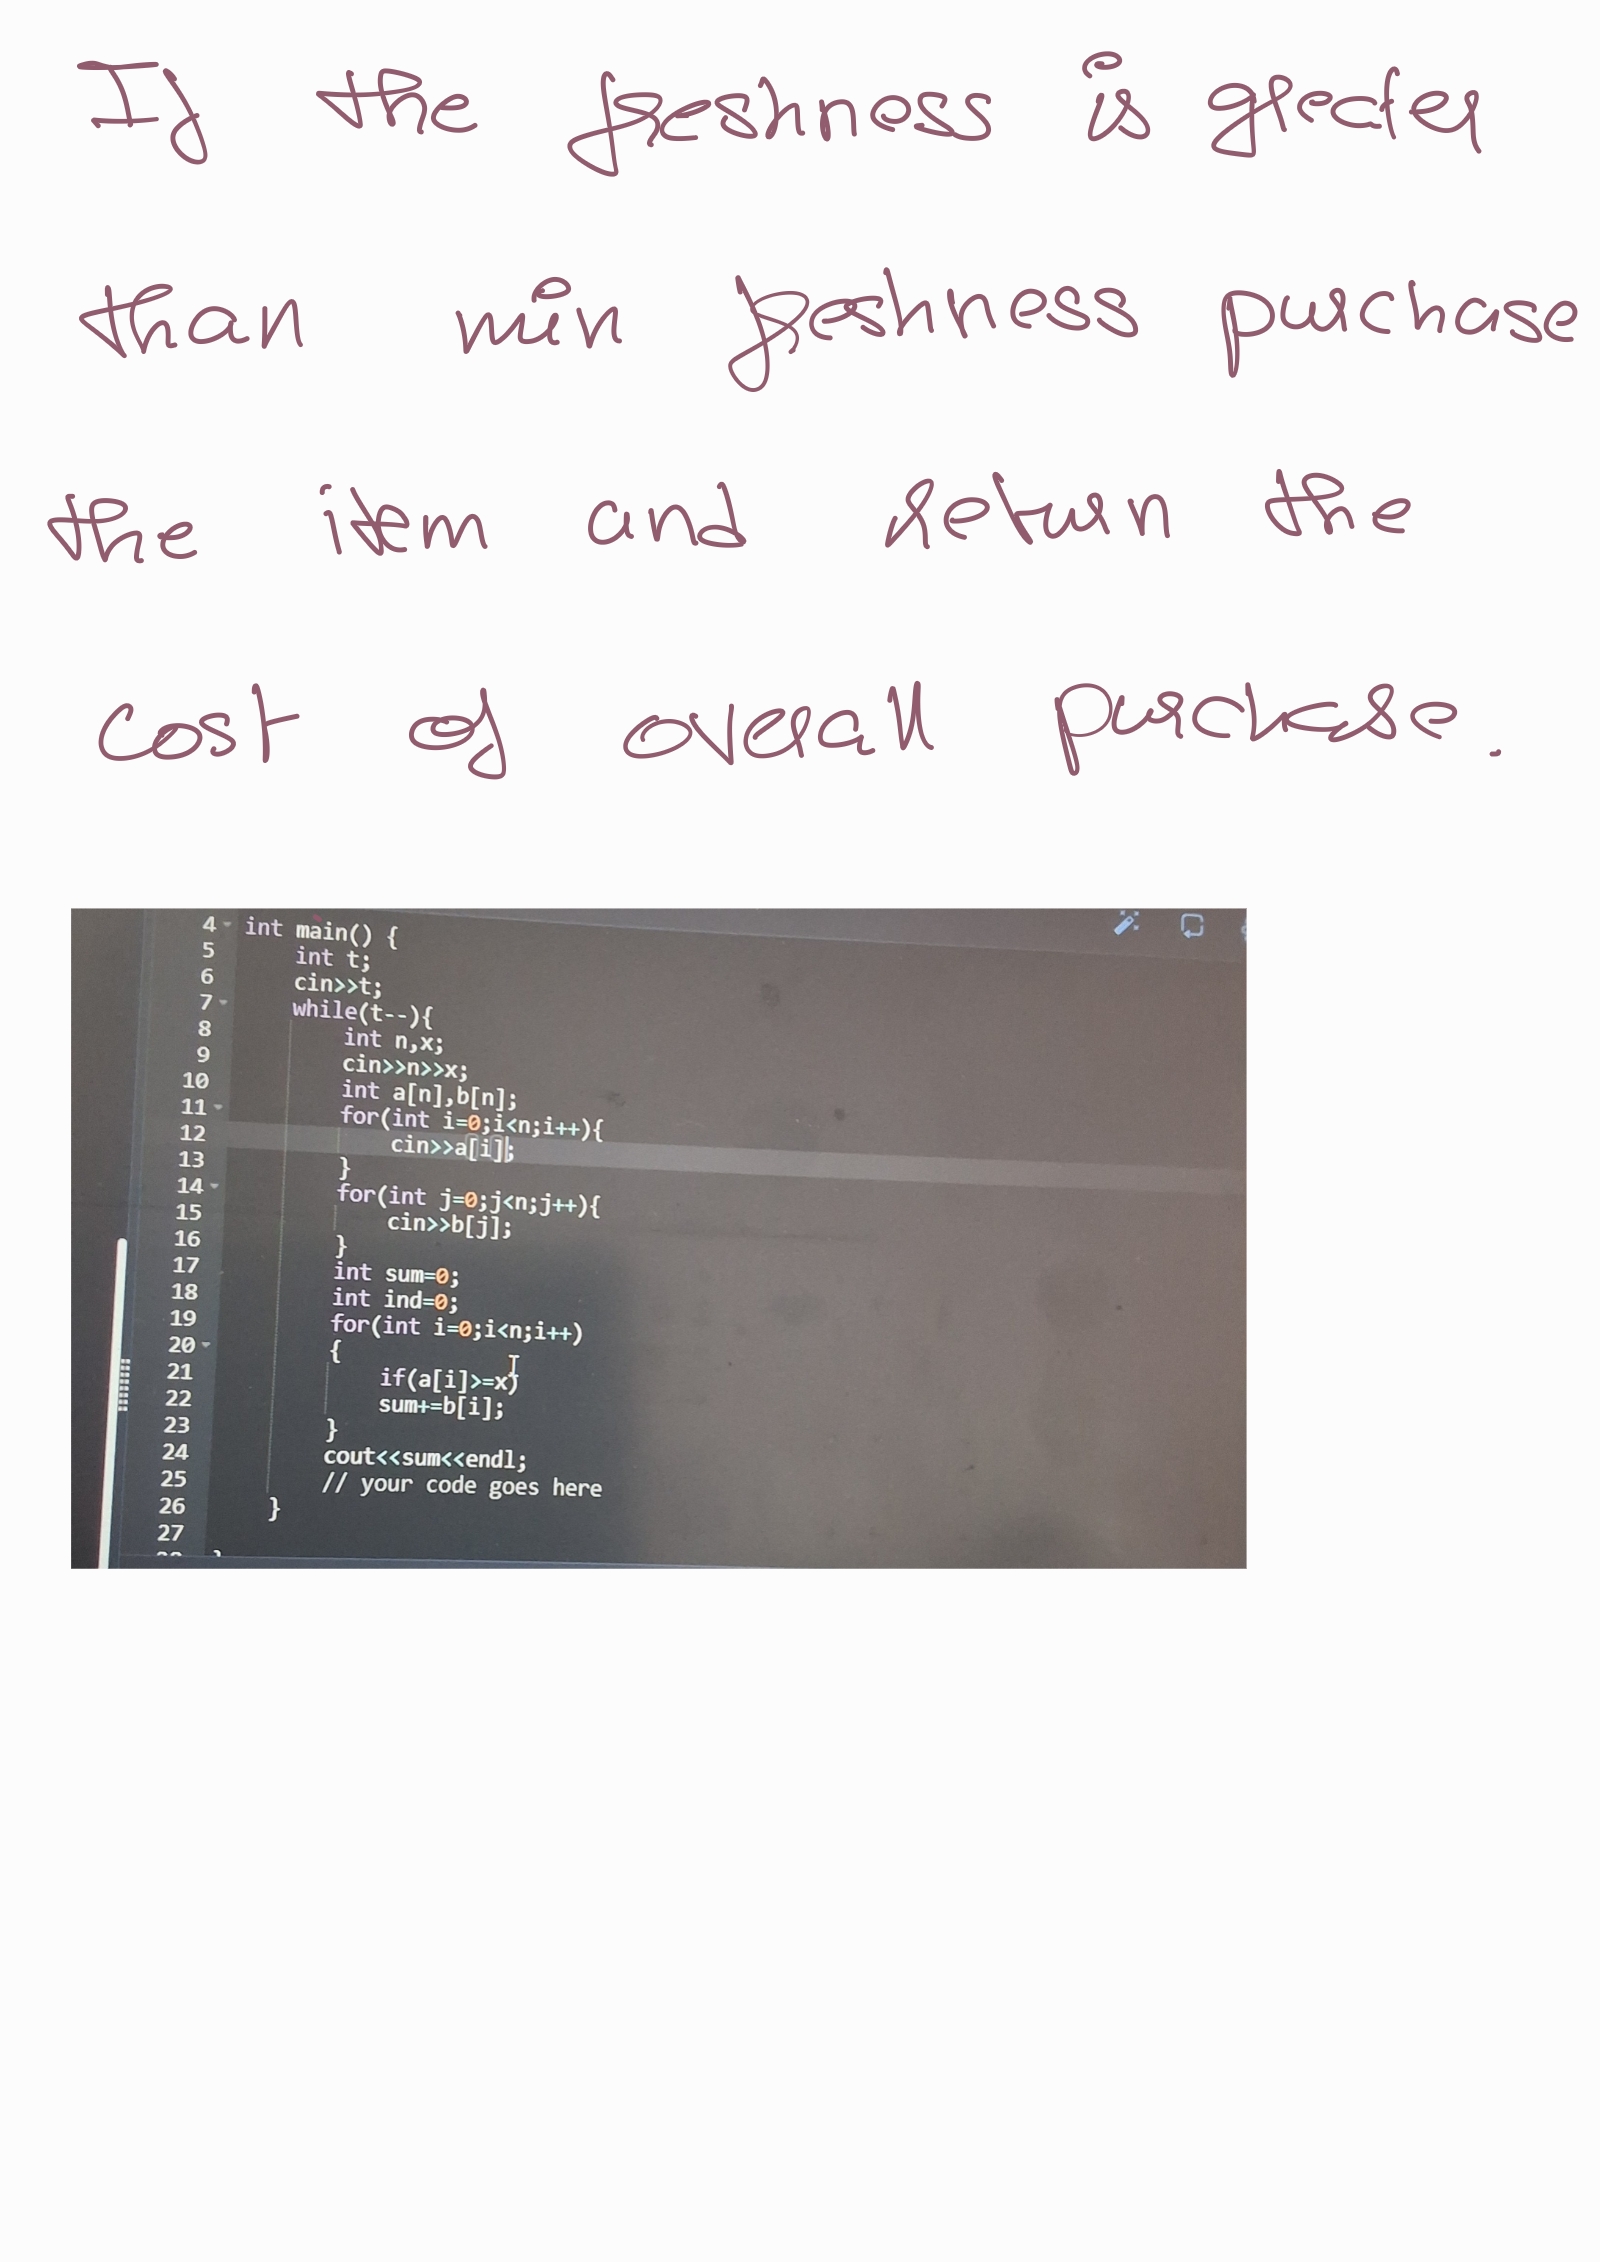 If the freshness is greater
than min freshness purchase
the item and return the
cost of overall purchase.
4 int main() {
5 int t;
6 cin>>t;
7 while(t--){
8 int n,x;
9 cin>>n>>x;
10 int a[n],b[n];
11 for(int i=0;i<n;i++){
12 cin>>a[i];
13 }
14 for(int j=0;j<n;j++){
15 cin>>b[j];
16 }
17 int sum=0;
18 int ind=0;
19 for(int i=0;i<n;i++)
20 {
21 if(a[i]>=x)
22 sum+=b[i];
23 }
24 cout<<sum<<endl;
25 // your code goes here
26 }
27